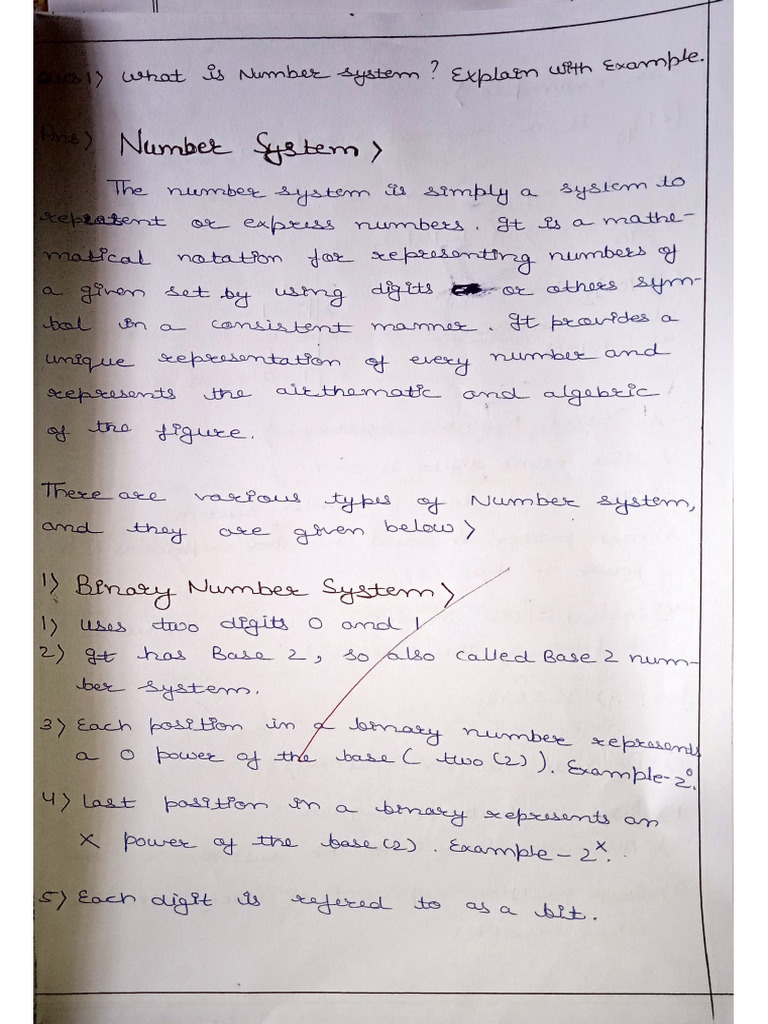 Ques 1) What is Number system? Explain with Example.
Ans) Number System >
The number system is simply a system to
represent or express numbers. It is a mathe-
matical notation for representing numbers of
a given set by using digits or others sym-
bol in a consistent manner. It provides a
unique representation of every number and
represents the airthematic and algebric
of the figure.
There are various types of Number system,
and they are given below >
1) Binary Number System >
1) Uses two digits 0 and 1
2) It has Base 2, so also called Base 2 num-
ber system.
3) Each position in a binary number represents
a 0 power of the base ( two (2) ). Example - 2⁰.
4) Last position in a binary represents an
x power of the base (2). Example - 2ˣ.
5) Each digit is refered to as a bit.